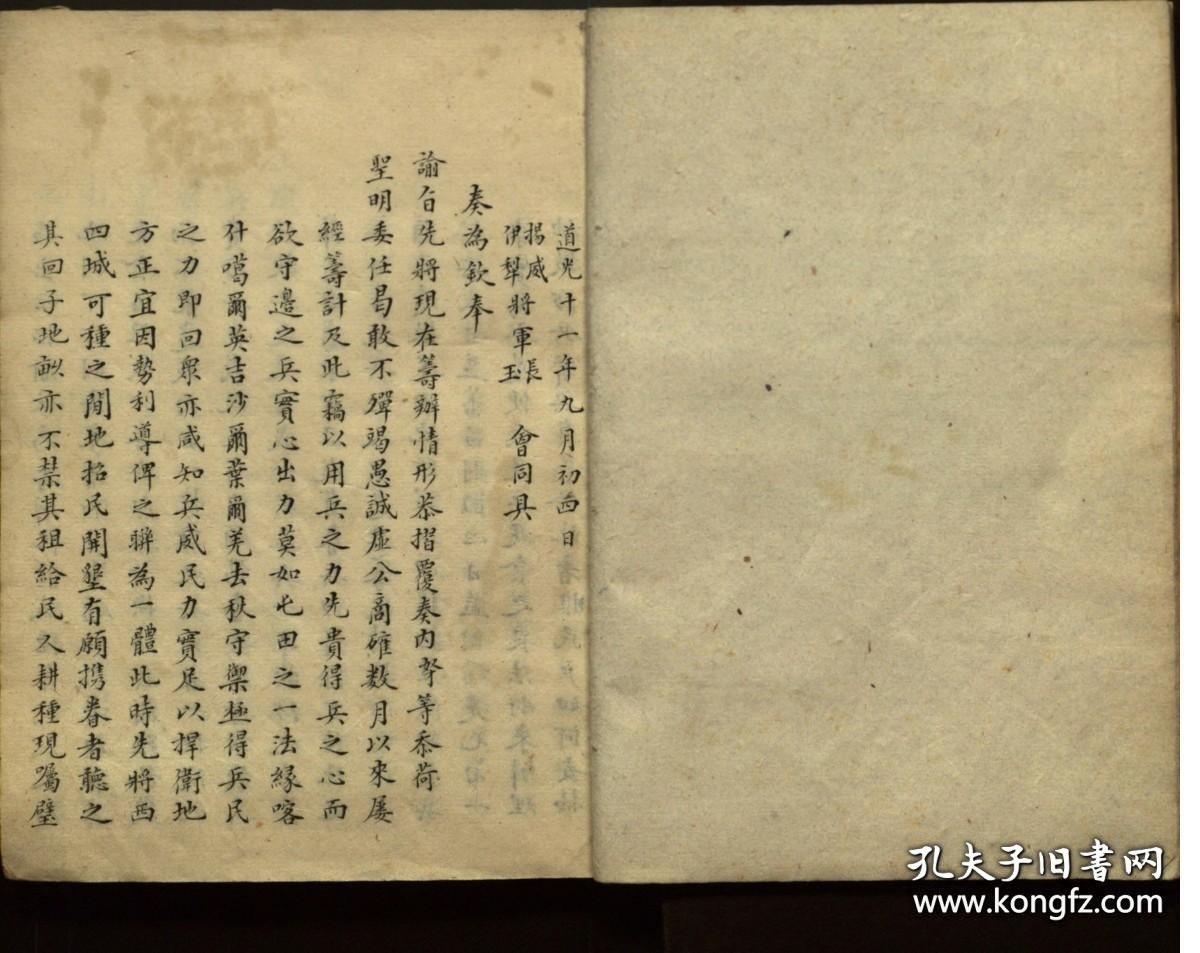 道光十一年九月初四日
揚威
伊犁將軍長
玉
會同具
奏為欽奉
諭旨先將現在籌辦情形恭摺覆奏內夸等忝荷
聖明委任曷敢不殫竭愚誠虛公商確数月以來屡
經籌計及此竊以用兵之力先貴得兵之心而
欲守邊之兵實心出力莫如屯田之一法緣喀
什噶爾英吉沙爾葉爾羌去秋守禦極得兵民
之力即回衆亦咸知兵威民力實足以捍衛地
方正宜因勢利導俾之聯為一體此時先將西
四城可種之間地招民開墾有願携眷者聽之
其回子地畝亦不禁其租給民人耕種現囑璧
孔夫子旧書网
www.kongfz.com